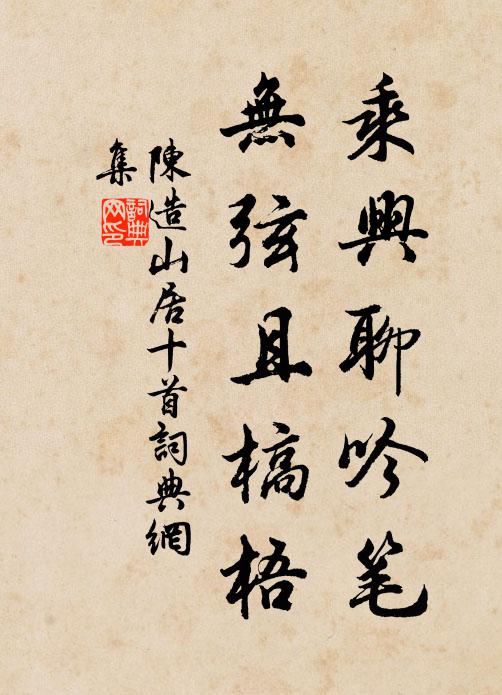 乘興聊吟笔
無弦且槁梧
陳造山居十首詞典網
集
詞典
网印